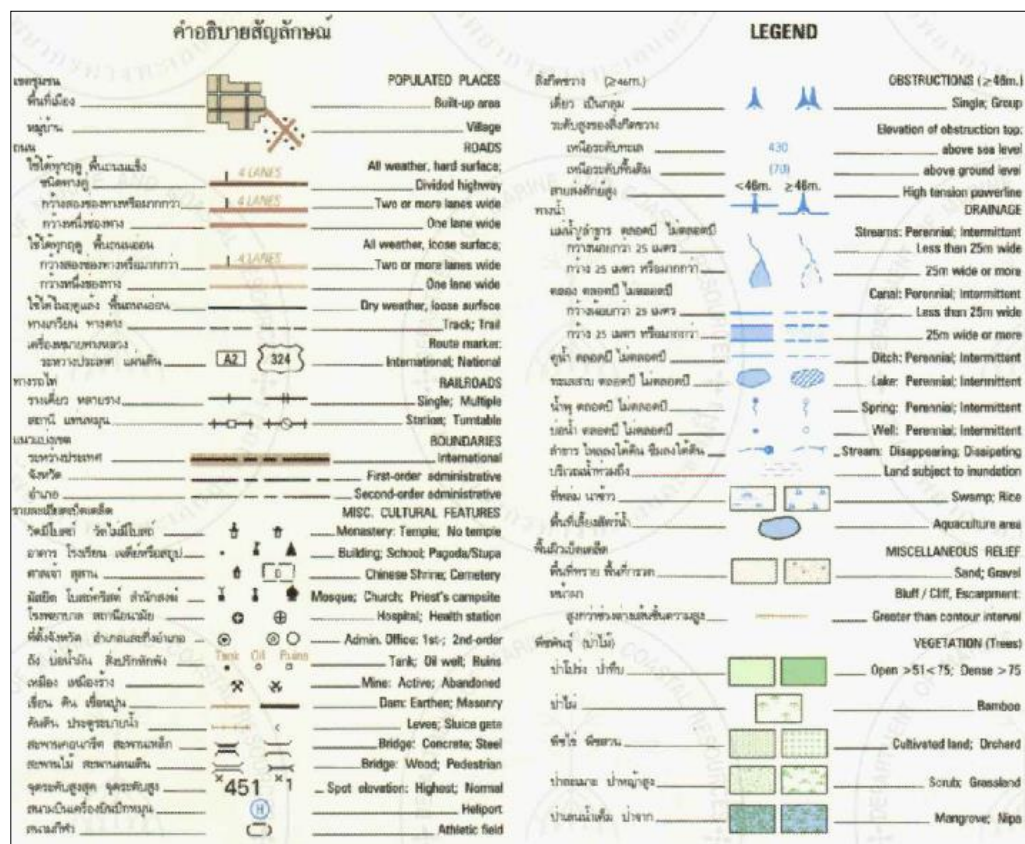 คำอธิบายสัญลักษณ์
เขตชุมชน POPULATED PLACES
พื้นที่เมือง Built-up area
หมู่บ้าน Village
ถนน ROADS
ใช้ได้ทุกฤดู พื้นถนนแข็ง All weather, hard surface;
ชนิดทางคู่ 4 LANES Divided highway
กว้างสองช่องทางหรือมากกว่า 4 LANES Two or more lanes wide
กว้างหนึ่งช่องทาง One lane wide
ใช้ได้ทุกฤดู พื้นถนนอ่อน All weather, loose surface;
กว้างสองช่องทางหรือมากกว่า 4 LANES Two or more lanes wide
กว้างหนึ่งช่องทาง One lane wide
ใช้ได้ในฤดูแล้ง พื้นถนนอ่อน Dry weather, loose surface
ทางเกวียน ทางต่าง Track; Trail
เครื่องหมายทางหลวง Route marker:
ระหว่างประเทศ แผ่นดิน A2 324 International; National
ทางรถไฟ RAILROADS
รางเดี่ยว หลายราง Single; Multiple
สถานี แท่นหมุน Station; Turntable
แนวแบ่งเขต BOUNDARIES
ระหว่างประเทศ International
จังหวัด First-order administrative
อำเภอ Second-order administrative
รายละเอียดเบ็ดเตล็ด MISC. CULTURAL FEATURES
วัดมีโบสถ์ วัดไม่มีโบสถ์ Monastery: Temple; No temple
อาคาร โรงเรียน เจดีย์หรือสถูป Building; School; Pagoda/Stupa
ศาลเจ้า สุสาน Chinese Shrine; Cemetery
มัสยิด โบสถ์คริสต์ สำนักสงฆ์ Mosque; Church; Priest's campsite
โรงพยาบาล สถานีอนามัย Hospital; Health station
ที่ตั้งจังหวัด อำเภอและกิ่งอำเภอ Admin. Office: 1st-; 2nd-order
ถัง บ่อน้ำมัน สิ่งปรักหักพัง Tank Oil Ruins Tank; Oil well; Ruins
เหมือง เหมืองร้าง Mine: Active; Abandoned
เขื่อน ดิน เขื่อนปูน Dam: Earthen; Masonry
คันดิน ประตูระบายน้ำ Levee; Sluice gate
สะพานคอนกรีต สะพานเหล็ก Bridge: Concrete; Steel
สะพานไม้ สะพานคนเดิน Bridge: Wood; Pedestrian
จุดระดับสูงสุด จุดระดับสูง 451 1 Spot elevation: Highest; Normal
สนามบินเครื่องบินปีกหมุน H Heliport
สนามกีฬา Athletic field
LEGEND
สิ่งกีดขวาง (≥46m.) OBSTRUCTIONS (≥46m.)
เดี่ยว เป็นกลุ่ม Single; Group
ระดับสูงของสิ่งกีดขวาง Elevation of obstruction top:
เหนือระดับทะเล 430 above sea level
เหนือระดับพื้นดิน (70) above ground level
สายส่งศักย์สูง <46m. ≥46m. High tension powerline
ทางน้ำ DRAINAGE
แม่น้ำลำธาร ตลอดปี ไม่ตลอดปี Streams: Perennial; Intermittent
กว้างน้อยกว่า 25 เมตร Less than 25m wide
กว้าง 25 เมตร หรือมากกว่า 25m wide or more
คลอง ตลอดปี ไม่ตลอดปี Canal: Perennial; Intermittent
กว้างน้อยกว่า 25 เมตร Less than 25m wide
กว้าง 25 เมตร หรือมากกว่า 25m wide or more
คูน้ำ ตลอดปี ไม่ตลอดปี Ditch: Perennial; Intermittent
ทะเลสาบ ตลอดปี ไม่ตลอดปี Lake: Perennial; Intermittent
น้ำพุ ตลอดปี ไม่ตลอดปี Spring: Perennial; Intermittent
บ่อน้ำ ตลอดปี ไม่ตลอดปี Well: Perennial; Intermittent
ลำธาร ไหลลงใต้ดิน ซึมลงใต้ดิน Stream: Disappearing; Dissipating
บริเวณน้ำท่วมถึง Land subject to inundation
ที่หล่ม นาข้าว Swamp; Rice
พื้นที่เลี้ยงสัตว์น้ำ Aquaculture area
พื้นผิวเบ็ดเตล็ด MISCELLANEOUS RELIEF
พื้นที่ทราย พื้นที่กรวด Sand; Gravel
หน้าผา Bluff / Cliff, Escarpment:
สูงกว่าช่วงต่างเส้นชั้นความสูง Greater than contour interval
พืชพันธุ์ (ป่าไม้) VEGETATION (Trees)
ป่าโปร่ง ป่าทึบ Open >51<75; Dense >75
ป่าไผ่ Bamboo
พืชไร่ พืชสวน Cultivated land; Orchard
ป่าละเมาะ ป่าหญ้าสูง Scrub; Grassland
ป่าเลนน้ำเค็ม ป่าจาก Mangrove; Nipa